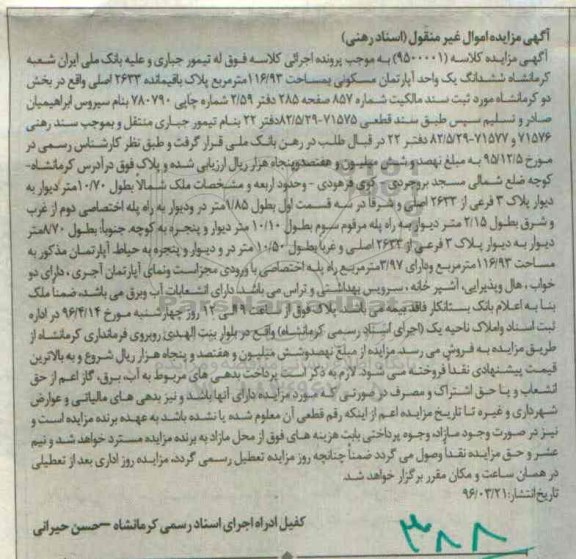 آگهی مزایده اموال غیر منقول (اسناد رهنی)
آگهی مزایده کلاسه (۹۵۰۰۰۰۱) به موجب پرونده اجرائی کلاسه فوق له تیمور جباری و علیه بانک ملی ایران شعبه
کرمانشاه ششدانگ یک واحد آپارتمان مسکونی بمساحت ۱۱۶/۹۳مترمربع پلاک باقیمانده ۲۶۳۳ اصلی واقع در بخش
دو کرمانشاه مورد ثبت سند مالکیت شماره ۸۵۷ صفحه ۲۸۵ دفتر ۲/۵۹ شماره چاپی ۷۸۰۷۹۰ بنام سیروس ابراهیمیان
صادر و تسلیم سپس طبق سند قطعی ۷۱۵۷۵-۸۲/۵/۲۹دفتر ۲۲ بنام تیمور جباری منتقل و بموجب سند رهنی
۷۱۵۷۶ و ۷۱۵۷۷-۸۲/۵/۲۹ دفتر ۲۲ در قبال طلب در رهن بانک ملی قرار گرفت و طبق نظر کارشناس رسمی در
مورخ ۹۵/۱۲/۵ به مبلغ نهصدوشش میلیون و هفتصدوپنجاه هزار ریال ارزیابی شده و پلاک فوق در آدرس کرمانشاه-
کوچه ضلع شمالی مسجد بروجردی - کوی فرهودی - وحدود اربعه و مشخصات ملک شمالا بطول ۱۰/۷۰متر دیوار به
دیوار پلاک ۳ فرعی از ۲۶۳۳ اصلی و شرقا در سه قسمت اول بطول ۱/۸۵متر در ودیوار به راه پله اختصاصی دوم از غرب
و شرق بطول ۲/۱۵ متر دیوار به راه پله مرقوم سوم بطول ۱۰/۱۰ متر دیوار و پنجره به کوچه. جنوبا: بطول ۸/۷۰متر
دیوار به دیوار پلاک ۳ فرعی از ۲۶۳۳ اصلی و غربا بطول ۱۰/۵۰ متر در و دیوار و پنجره به حیاط. آپارتمان مذکور به
مساحت ۱۱۶/۹۳مترمربع ودارای ۳/۹۷مترمربع راه پله اختصاصی با ورودی مجزاست ونمای آپارتمان آجری ، دارای دو
خواب ، هال وپذیرایی، آشپز خانه ، سرویس بهداشتی و تراس می باشد. دارای انشعابات آب وبرق می باشد، ضمنا ملک
بنا به اعلام بانک بستانکار فاقد بیمه می باشد. پلاک فوق از ساعت ۹ الی ۱۲ روز چهارشنبه مورخ ۹۶/۴/۱۴ در اداره
ثبت اسناد واملاک ناحیه یک (اجرای اسناد رسمی کرمانشاه) واقع در بلوار بنت الهدی روبروی فرمانداری کرمانشاه از
طریق مزایده به فروش می رسد. مزایده از مبلغ نهصدوشش میلیون و هفتصد و پنجاه هزار ریال شروع و به بالاترین
قیمت پیشنهادی نقدا فروخته می شود. لازم به ذکر است پرداخت بدهی های مربوط به آب، برق، گاز اعم از حق
انشعاب و یا حق اشتراک و مصرف در صورتی که مورد مزایده دارای آنها باشد و نیز بدهی های مالیاتی و عوارض
شهرداری و غیره تا تاریخ مزایده اعم از اینکه رقم قطعی آن معلوم شده یا نشده باشد به عهده برنده مزایده است و
نیز در صورت وجود مازاد، وجوه پرداختی بابت هزینه های فوق از محل مازاد به برنده مزایده مسترد خواهد شد و نیم
عشر و حق مزایده نقدا وصول می گردد ضمنا چنانچه روز مزایده تعطیل رسمی گردد، مزایده روز اداری بعد از تعطیلی
در همان ساعت و مکان مقرر برگزار خواهد شد
تاریخ انتشار: ۹۶/۰۳/۲۱
کفیل اداره اجرای اسناد رسمی کرمانشاه –حسن حیرانی
۳۸۸